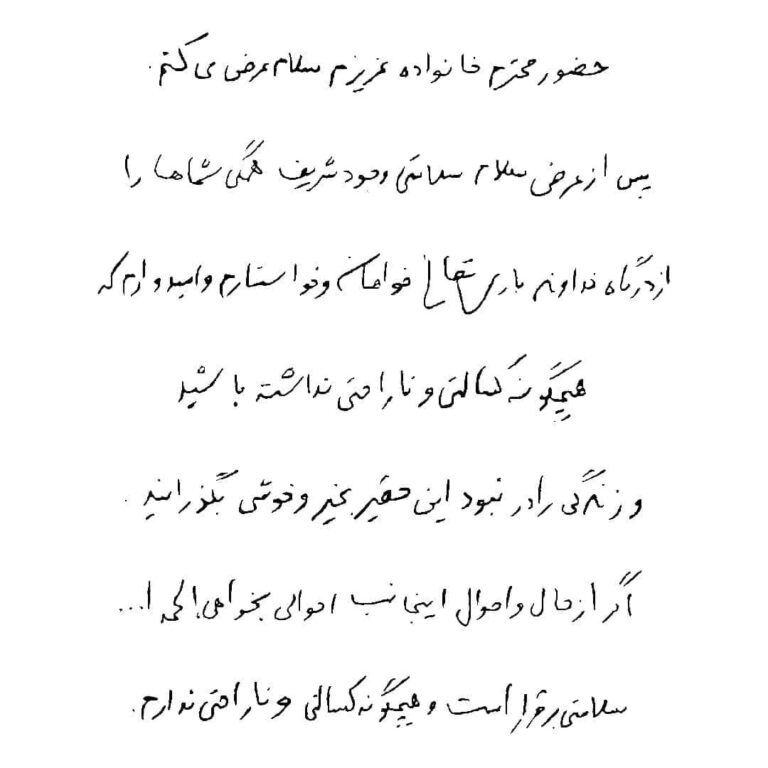 حضور محترم خانواده عزیزم سلام عرض می کنم.
پس از عرض سلام سلامتی وجود شریف همگی شماها را
از درگاه خداوند باری تعالی خواهان و خواستارم و امیدوارم که
هیچگونه کسالتی و ناراحتی نداشته باشید
و زندگی را در نبود این حقیر بخیر و خوشی بگذرانید.
اگر از حال و احوال اینجانب احوالی بخواهی، الحمد ا...
سلامتی برقرار است و هیچگونه کسالتی و ناراحتی ندارم.